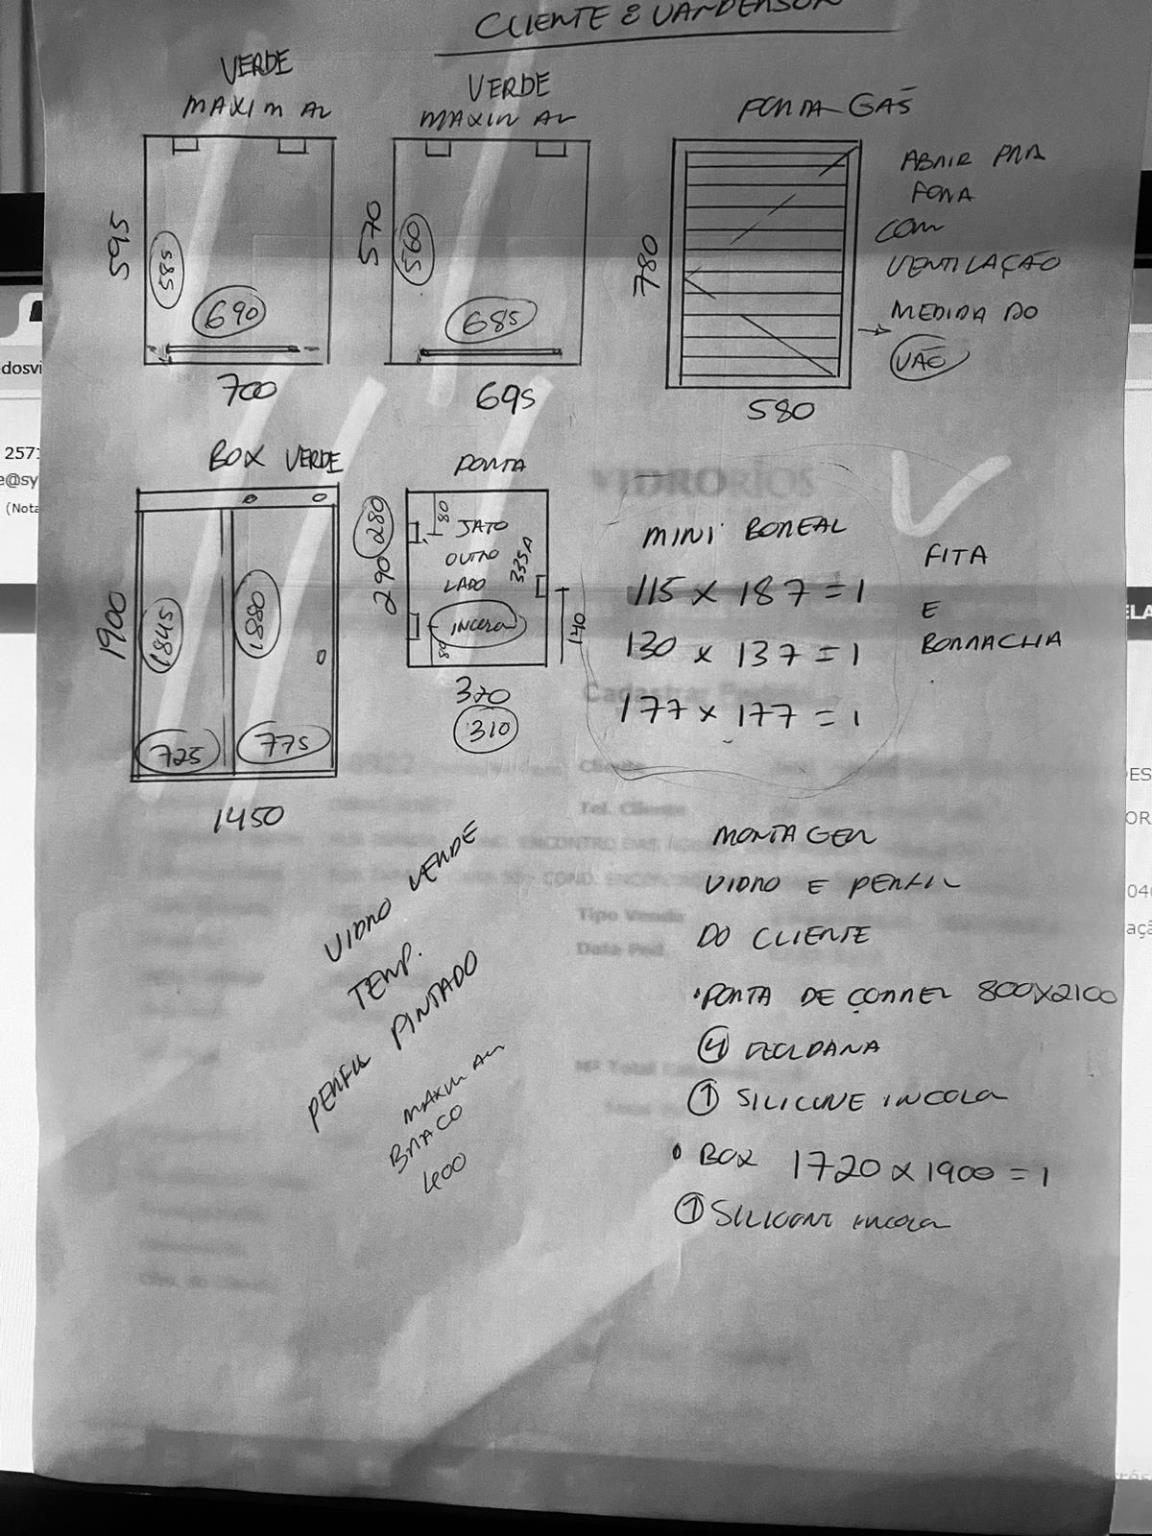 CLIENTE & VANDERSON
VERDE
MAXIM AR
595
585
690
700
VERDE
MAXIM AR
570
560
685
695
PORTA GÁS
780
580
ABRIR PRA
FORA
COM
VENTILAÇÃO
MEDIDA DO
VÃO
BOX VERDE
1900
1845
1880
725
775
1450
PORTA
280
290
80
JATO
OUTRO
LADO
INCOLOR
335A
80
140
320
310
VIDRORIOS
MINI BOREAL
115 x 187 = 1
130 x 137 = 1
177 x 177 = 1
FITA
E
BORRACHA
VIDRO VERDE
TEMP.
PERFIL PINTADO
MAXIM AR
BRAÇO
400
MONTAGEM
VIDRO E PERFIL
DO CLIENTE
• PORTA DE CORRER 800X2100
④ ROLDANA
① SILICONE INCOLOR
• BOX 1720 x 1900 = 1
① SILICONE INCOLOR
Cadastrar
Cliente
Tel. Cliente
Tipo Venda
Data Ped.
dosvi
2571
e@sy
(Nota
ELA
ES
OR
040
açã